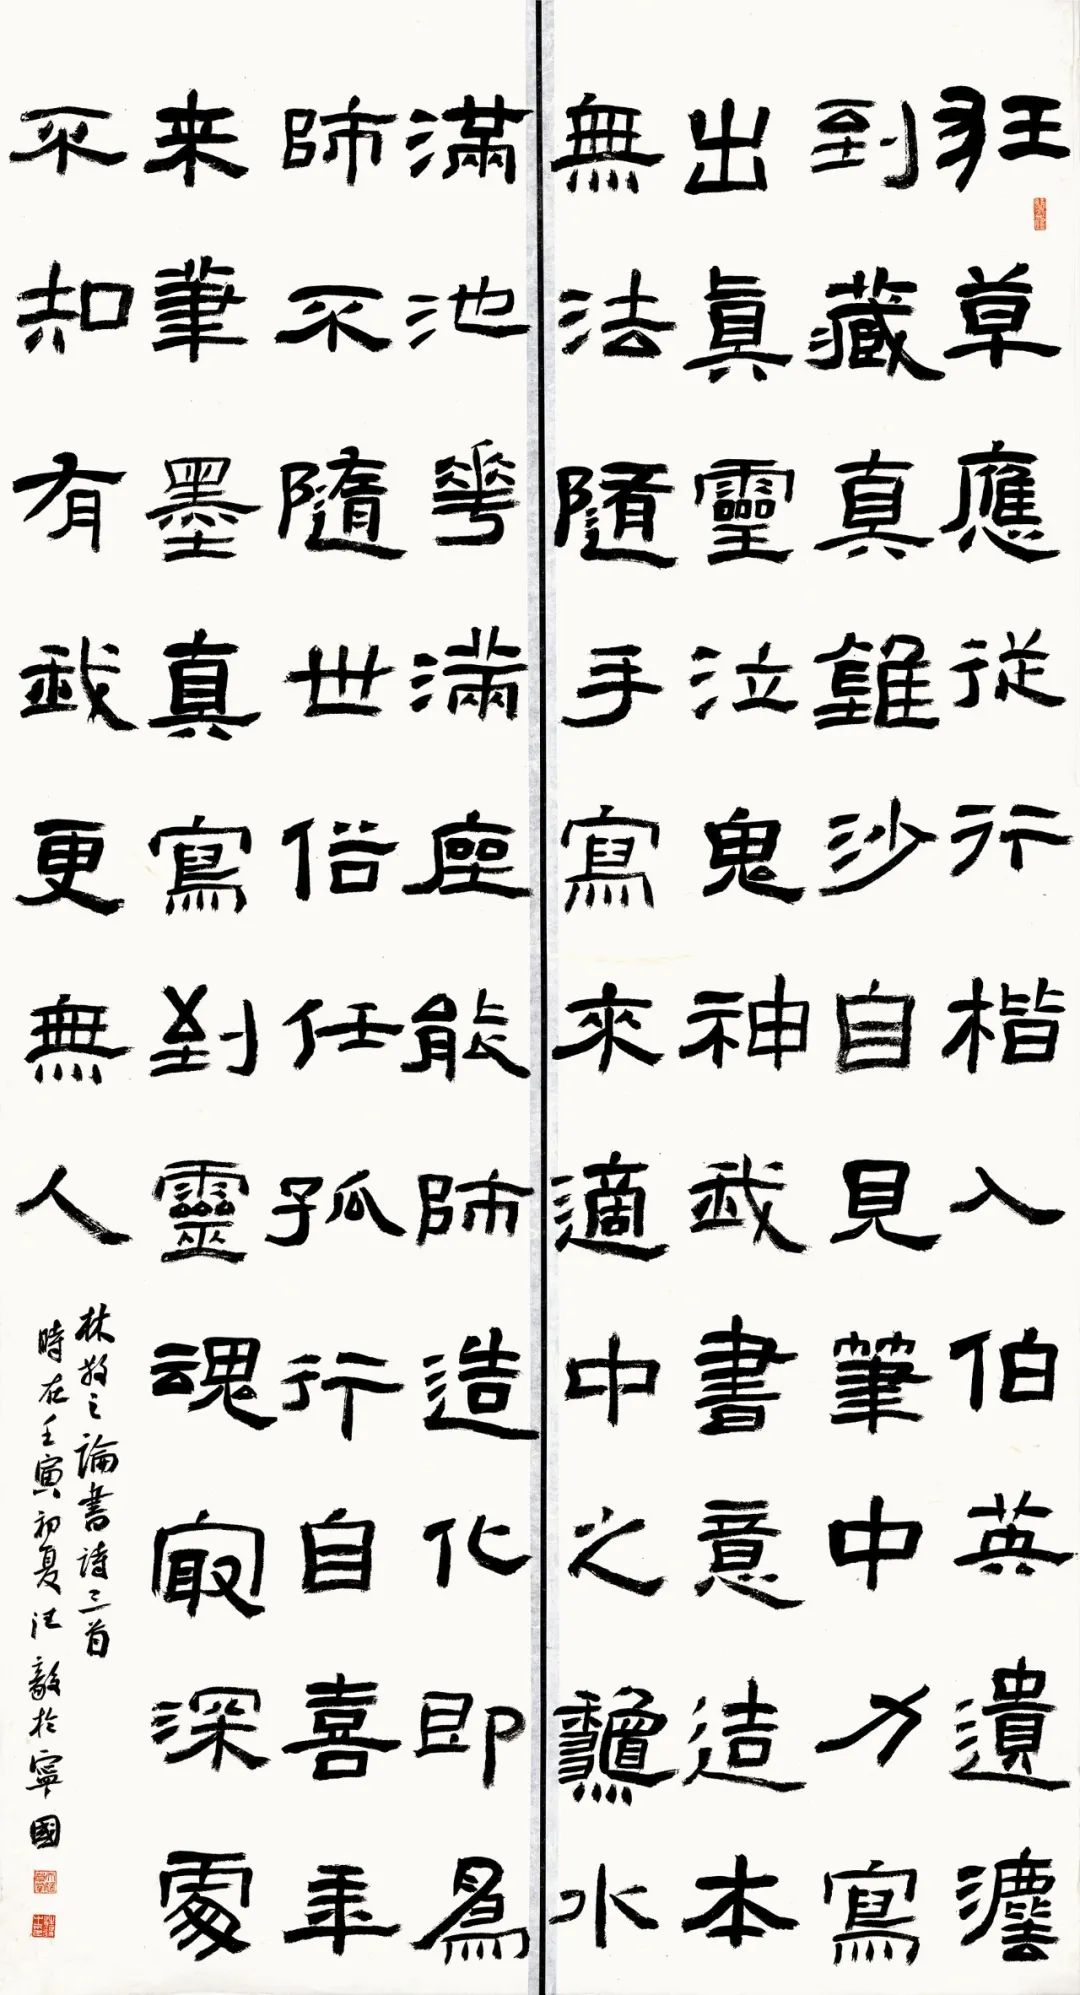 狂草應從行楷入伯英遺灋
到藏真錐沙自見筆中力寫
出眞靈泣鬼神我書意造本
無法隨手寫來適中之龝水
滿池華滿座能師造化即爲
師不隨世俗任孤行自喜年
来筆墨真寫到靈魂最深處
不知有我更無人
林散之論書詩三首
時在壬寅初夏汪毅於寧國